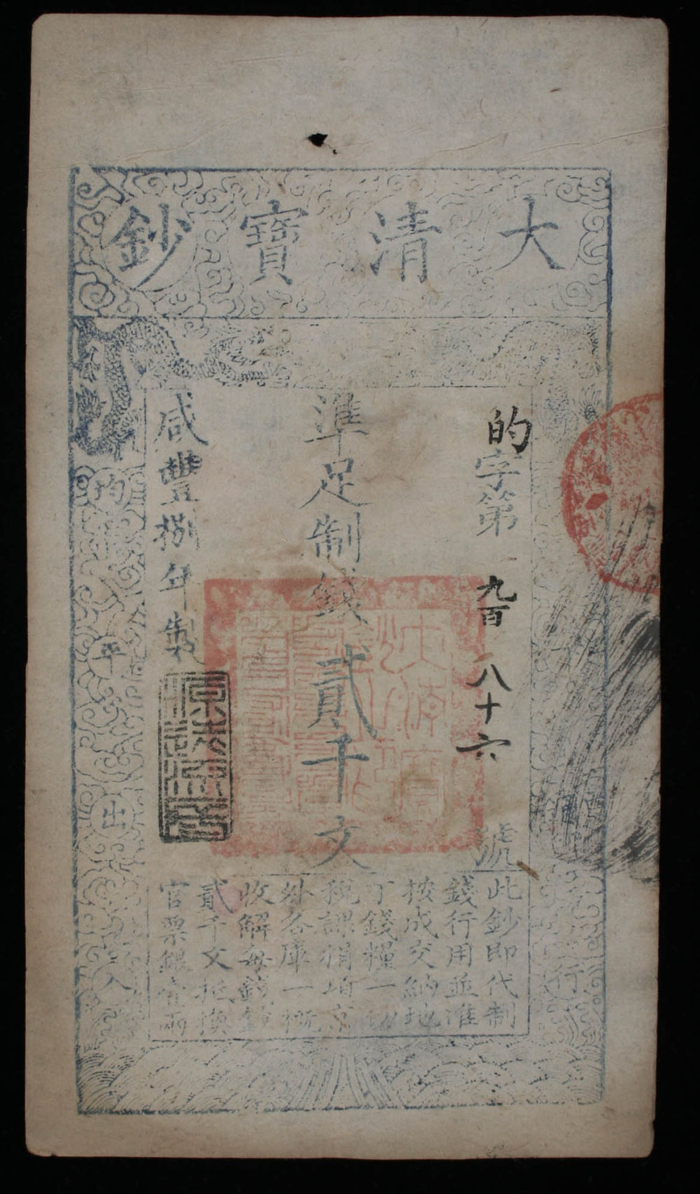 大清寶鈔
的字第九百八十六號
準足制錢貳千文
咸豐捌年製
源遠流長
均平出入
行
此鈔即代制
錢行用並准
按成交納地
丁錢糧一切
稅課捐項京
外各庫一概
收解每錢鈔
貳千文抵換
官票銀壹兩